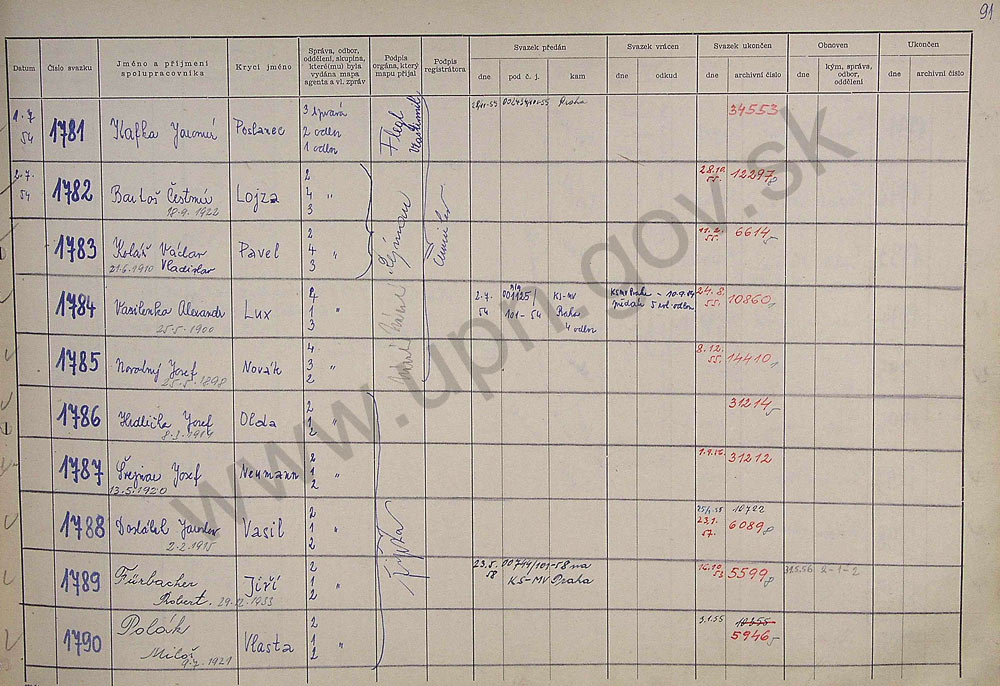 91
Datum
Číslo svazku
Jméno a příjmení
spolupracovníka
Krycí jméno
Správa, odbor,
oddělení, skupina,
které(mu) byla
vydána mapa
agenta a vl. zpráv
Podpis
orgána, který
mapu přijal
Podpis
registrátora
Svazek předán
dne
pod č. j.
kam
Svazek vrácen
dne
odkud
Svazek ukončen
dne
archivní číslo
Obnoven
dne
kým, správa,
odbor,
oddělení
Ukončen
dne
archivní číslo
1.7
54
1781
Poslanec
3 správa
2 odbor
1 odděl
Flegl
Vlastimil
Praha
34553
2.7.
54
1782
Bartoš Čestmír
18.9.1922
Lojza
2
4 "
3
28.10.
55.
12297
1783
Kolář Václav
21.6.1910 Vladislav
Pavel
2
4 "
3
11.2.
55.
6614
1784
Vasilenka Alexandr
25.5.1900
Lux
2
1 "
3
2.7.
54
001125/
101-54
KS-MV
Praha
4 odbor
KSMV Praha - 10.9.54
24.8.
55.
10860
1785
Novotný Josef
25.5.1898
Novák
4
3 "
2
8.12.
55.
14410
1786
Hedlička Josef
8.3.1914
Olda
2
1
2
31214
1787
Josef
13.5.1920
Neumann
2
1 "
2
31212
1788
Dostálek Jaroslav
2.2.1915
Vasil
2
1 "
2
10722
23.1.
57.
6089
1789
Fürbacher
Robert. 29.12.1933
Jiří
2
1 "
2
23.5.
58
00744/101-58 na
KS-MV Praha
16.10
53
5599
31.5.56 2-1-2
1790
Polák
Miloš
9.7.1921
Vlasta
2
1 "
2
3.1.55
5946
www.upn.gov.sk